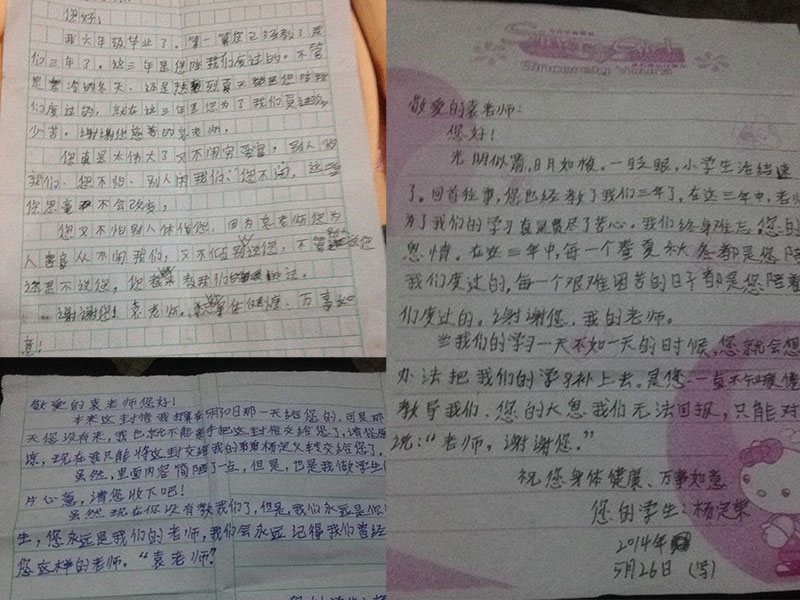 您好!
我六年级毕业了。算一算您已经教了我
们三年了。这三年是您陪我们度过的。不管
是寒冷的冬天、还是
们度过的,就在这三年里您为了我们
少苦。谢谢您慈善的袁老师。
您真是太伟大了又不闲穷
我们、您不怕、别人闲我们、您不闲,
您思毫不会改变。
您又不怕别人体伯您,因为袁老师您为
人善良从不闲我们,又不怕别说您,不管
谢谢您!袁老师。身体健康、万事如
意!
敬爱的袁老师您好!
本来这封信我
天您没有来,我也就不能亲手把这封信交给您了,请您原
谅,现在我只能将这封交给我的弟弟杨定义转交给您了。
虽然,里面内容简陋了一点,但是,也是我做学生
片心意,请您收下吧!
虽然现在你没有教我们了,但是,我们永远是你
生,您永远是我们的老师,我们会永远记得我们曾经
您这样的老师。“袁老师”
敬爱的袁老师:
您好!
光明似箭,日月如梭。一眨眼,小学生活结速
了。回首往事,您已经教了我们三年了。在这三年中,老师
为了我们的学习真是费尽了苦心。我们终身难忘,您的
恩情。在这三年中,每一个春夏秋冬都是您陪
我们度过的,每一个艰难困苦的日子都是您陪着
们度过的。谢谢您,我的老师。
当我们的学习一天不如一天的时候,您就会想
办法把我们的学习补上去。是您一直不知疲倦
教导我们、您的大恩我们无法回报,只能对
说:“老师,谢谢您。”
祝您身体健康、万事如意
您的学生:杨定
2014年
5月26日(写)